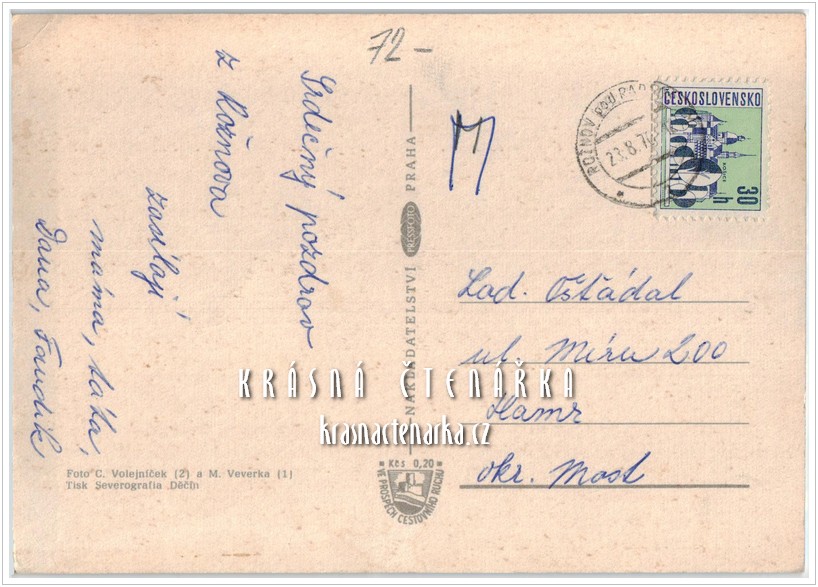 72-
Srdečný pozdrav
z Rožnova
zasílají
máma, táta,
Dana,
NAKLADATELSTVÍ PRESSFOTO PRAHA
M
ROŽNOV POD RADH
23.8.7
ČESKOSLOVENSKO
30
h
Lad. Ošťádal
ul. Míru 200
Hamr
okr. Most
KRÁSNÁ ČTENÁŘKA
krasnactenarka.cz
Foto C. Volejníček (2) a M. Veverka (1)
Tisk Severografia Děčín
Kčs 0,20
VE PROSPĚCH CESTOVNÍHO RUCHU